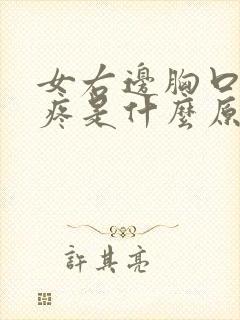 女右邊胸口
疼是什麼原
許其亮